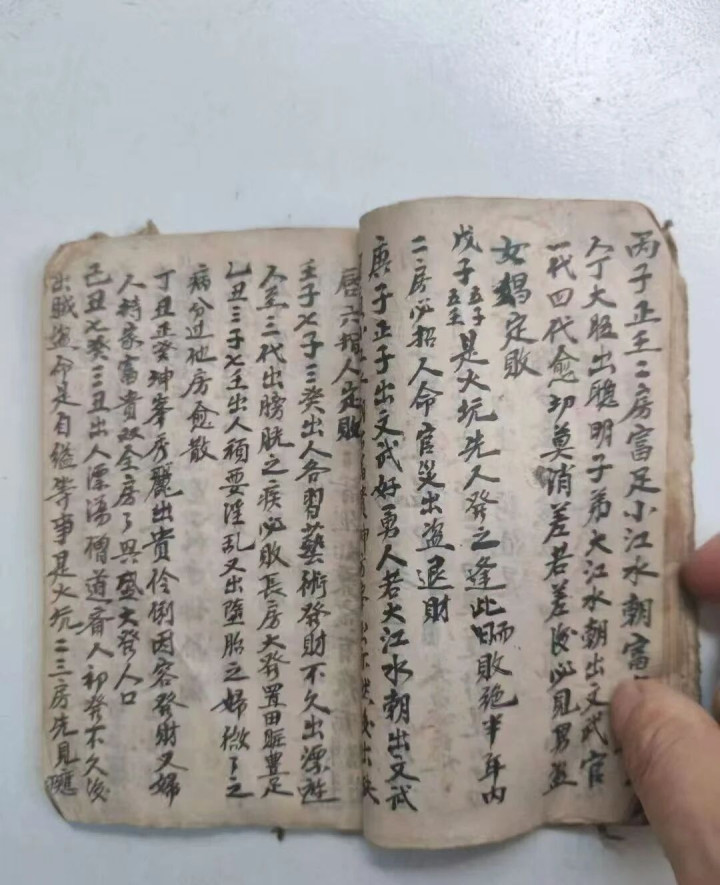 丙子正壬二房富足小江水朝富
人丁大旺出聰明子弟大江水朝出文武官
一代四代愈功莫消差若差後必見男盗
女娼定敗
戊子五子五壬是火坑先人發之逢此敗絶半年内
二房必招人命官災出盗退財
庚子正子出文武好勇人若大江水朝出文武
唇六指人定敗
壬子七子三癸出人各習藝術發財不久出漂遊
人至三代出膀胱之疾必敗長房大發置田庄豊足
乙丑三子七壬出人頑耍淫乱又出墮胎之婦做了之
病分过他房愈散
丁丑正癸坤峯秀麗出貴伶俐因容發財又婦
人持家富貴双全房了興盛大發人口
己丑七癸三丑出人漂湯僧道齋人初發不久後
出賊盗命是自縊等事是火坑二三房先見應